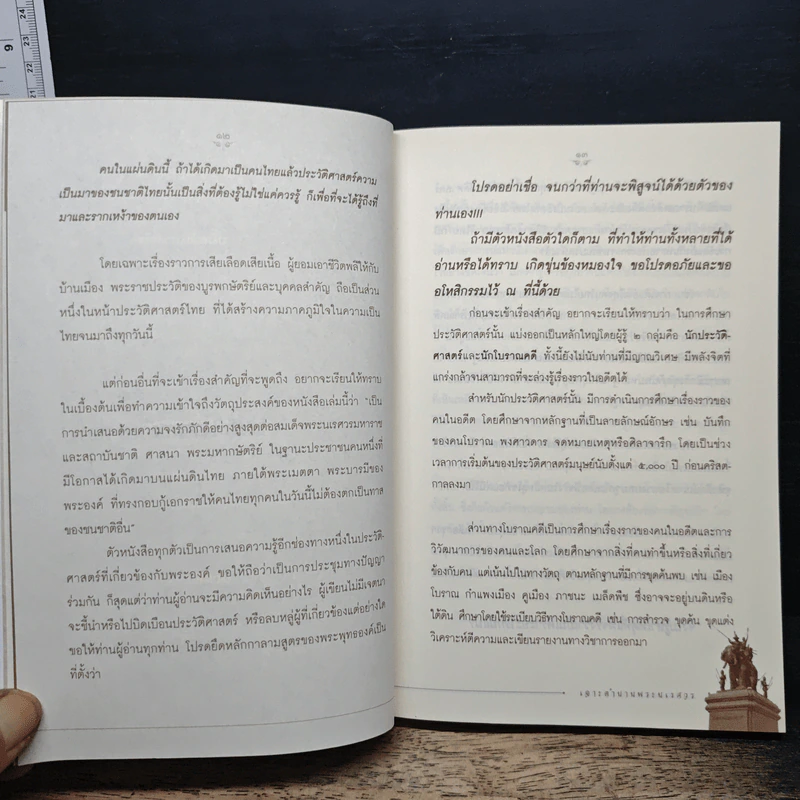 ๑๒
คนในแผ่นดินนี้ ถ้าได้เกิดมาเป็นคนไทยแล้วประวัติศาสตร์ความ
เป็นมาของชนชาติไทยนั้นเป็นสิ่งที่ต้องรู้ไม่ใช่แค่ควรรู้ ก็เพื่อที่จะได้รู้ถึงที่
มาและรากเหง้าของตนเอง
โดยเฉพาะเรื่องราวการเสียเลือดเสียเนื้อ ผู้ยอมเอาชีวิตพลีให้กับ
บ้านเมือง พระราชประวัติของบูรพกษัตริย์และบุคคลสำคัญ ถือเป็นส่วน
หนึ่งในหน้าประวัติศาสตร์ไทย ที่ได้สร้างความภาคภูมิใจในความเป็น
ไทยจนมาถึงทุกวันนี้
แต่ก่อนอื่นที่จะเข้าเรื่องสำคัญที่จะพูดถึง อยากจะเรียนให้ทราบ
ในเบื้องต้นเพื่อทำความเข้าใจถึงวัตถุประสงค์ของหนังสือเล่มนี้ว่า “เป็น
การนำเสนอด้วยความจงรักภักดีอย่างสูงสุดต่อสมเด็จพระนเรศวรมหาราช
และสถาบันชาติ ศาสนา พระมหากษัตริย์ ในฐานะประชาชนคนหนึ่งที่
มีโอกาสได้เกิดมาบนแผ่นดินไทย ภายใต้พระเมตตา พระบารมีของ
พระองค์ ที่ทรงกอบกู้เอกราชให้คนไทยทุกคนในวันนี้ไม่ต้องตกเป็นทาส
ของชนชาติอื่น”
ตัวหนังสือทุกตัวเป็นการเสนอความรู้อีกช่องทางหนึ่งในประวัติ-
ศาสตร์ที่เกี่ยวข้องกับพระองค์ ขอให้ถือว่าเป็นการประชุมทางปัญญา
ร่วมกัน ก็สุดแต่ว่าผู้อ่านจะมีความคิดเห็นอย่างไร ผู้เขียนไม่มีเจตนา
จะชี้นำหรือไปบิดเบือนประวัติศาสตร์ หรือลบหลู่ผู้ที่เกี่ยวข้องแต่อย่างใด
ขอให้ท่านผู้อ่านทุกท่าน โปรดยึดหลักกาลามสูตรของพระพุทธองค์เป็น
ที่ตั้งว่า
๑๓
โปรดอย่าเชื่อ จนกว่าที่ท่านจะพิสูจน์ได้ด้วยตัวของ
ท่านเอง!!!
ถ้ามีตัวหนังสือตัวใดก็ตาม ที่ทำให้ท่านทั้งหลายที่ได้
อ่านหรือได้ทราบ เกิดขุ่นข้องหมองใจ ขอโปรดอภัยและขอ
อโหสิกรรมไว้ ณ ที่นี้ด้วย
ก่อนจะเข้าเรื่องสำคัญ อยากจะเรียนให้ทราบว่า ในการศึกษา
ประวัติศาสตร์นั้น แบ่งออกเป็นหลักใหญ่โดยผู้รู้ ๒ กลุ่มคือ นักประวัติ-
ศาสตร์และนักโบราณคดี ทั้งนี้ยังไม่นับท่านที่มีญาณวิเศษ มีพลังจิตที่
แกร่งกล้าจนสามารถที่จะล่วงรู้เรื่องราวในอดีตได้
สำหรับนักประวัติศาสตร์นั้น มีการดำเนินการศึกษาเรื่องราวของ
คนในอดีต โดยศึกษาจากหลักฐานที่เป็นลายลักษณ์อักษร เช่น บันทึก
ของคนโบราณ พงศาวดาร จดหมายเหตุหรือศิลาจารึก โดยเป็นช่วง
เวลาการเริ่มต้นของประวัติศาสตร์มนุษย์นับตั้งแต่ ๕,๐๐๐ ปี ก่อนคริสต-
กาลลงมา
ส่วนทางโบราณคดีเป็นการศึกษาเรื่องราวของคนในอดีตและการ
วิวัฒนาการของคนและโลก โดยศึกษาจากสิ่งที่คนทำขึ้นหรือสิ่งที่เกี่ยว
ข้องกับคน แต่เน้นไปในทางวัตถุ ตามหลักฐานที่มีการขุดค้นพบ เช่น เมือง
โบราณ กำแพงเมือง คูเมือง ภาชนะ เมล็ดพืช ซึ่งอาจจะอยู่บนดินหรือ
ใต้ดิน ศึกษาโดยใช้ระเบียบวิธีทางโบราณคดี เช่น การสำรวจ ขุดค้น ขุดแต่ง
วิเคราะห์ตีความและเขียนรายงานทางวิชาการออกมา
เจาะตำนานพระนเรศวร